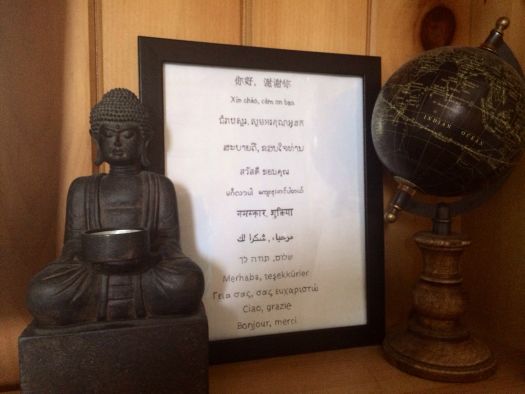 你好，谢谢你
Xin chào, cảm ơn bạn
ជំរាបសួរ, សូមអរគុណអ្នក
ສະບາຍດີ, ຂອບໃຈທ່ານ
สวัสดี ขอบคุณ
မင်္ဂလာပါ ကျေးဇူးတင်ပါတယ်
नमस्कार, शुक्रिया
مرحباء، شكرا لك
שלום, תודה לך
Merhaba, teşekkürler
Γεια σας, σας ευχαριστώ
Ciao, grazie
Bonjour, merci
INDIAN OCEAN